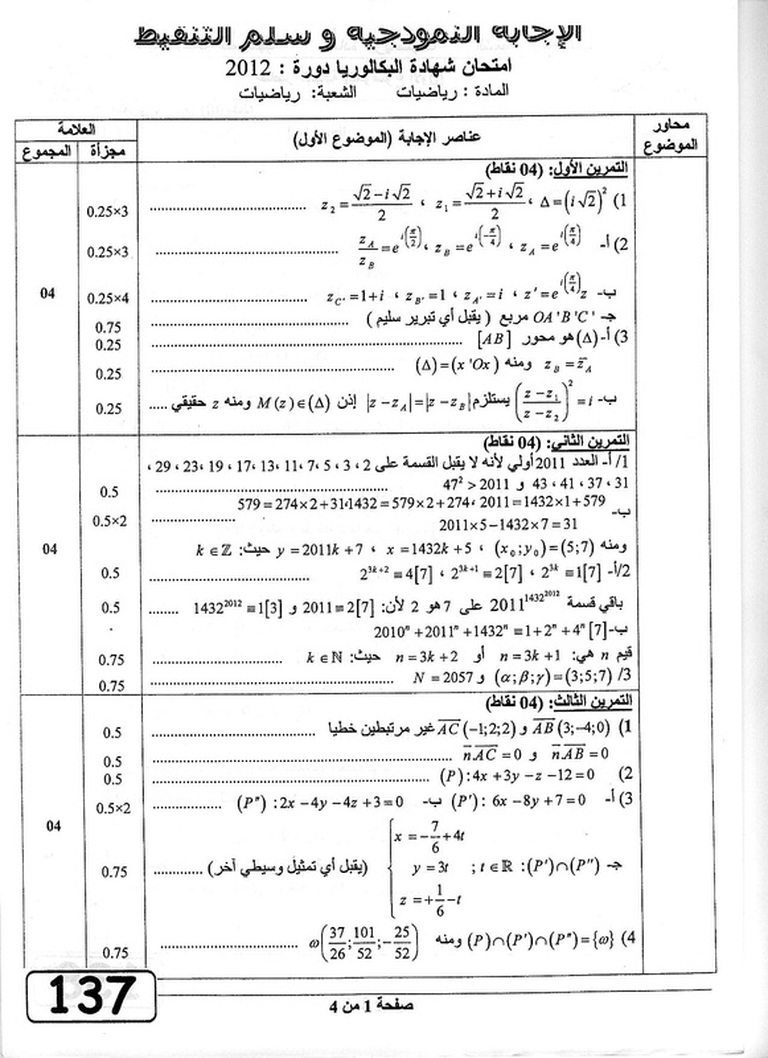 الإجابة النموذجية و سلم التنقيط
امتحان شهادة البكالوريا دورة : 2012
المادة : رياضيات الشعبة: رياضيات
محاور الموضوع
عناصر الإجابة (الموضوع الأول)
العلامة
مجزأة المجموع
التمرين الأول: (04 نقاط)
1) Δ=(i√2)² ، z₁=(√2+i√2)/2 ، z₂=(√2−i√2)/2 .......... 0.25×3
2) أ- z_A=e^{i(π/4)} ، z_B=e^{i(−π/4)} ، z_A/z_B=e^{i(π/2)} .......... 0.25×3
ب- z'=e^{i(π/4)}z ، z_{A'}=i ، z_{B'}=1 ، z_{C'}=1+i .......... 0.25×4 04
جـ- OA'B'C' مربع ( يقبل أي تبرير سليم ) .......... 0.75
3) أ- (Δ) هو محور [AB] .......... 0.25
z_B=z̄_A ومنه (Δ)=(x'Ox) .......... 0.25
ب- ((z−z₁)/(z−z₂))²=i يستلزم |z−z_A|=|z−z_B| إذن M(z)∈(Δ) ومنه z حقيقي ..... 0.25
التمرين الثاني: (04 نقاط)
1/ أ- العدد 2011 أولي لأنه لا يقبل القسمة على 2 ، 3 ، 5 ، 7 ، 11 ، 13 ، 17 ، 19 ، 23 ، 29 ،
31 ، 37 ، 41 ، 43 و 47² > 2011 .......... 0.5
ب- 2011=1432×1+579 ، 1432=579×2+274 ، 579=274×2+31
2011×5−1432×7=31 .......... 0.5×2
ومنه (x₀;y₀)=(5;7) ، x=1432k+5 ، y=2011k+7 حيث: k∈ℤ 04
2/أ- 2^{3k}≡1[7] ، 2^{3k+1}≡2[7] ، 2^{3k+2}≡4[7] .......... 0.5
باقي قسمة 2011^{1432^{2012}} على 7 هو 2 لأن: 2011≡2[7] و 1432^{2012}≡1[3] ........ 0.5
ب- 2010ⁿ+2011ⁿ+1432ⁿ≡1+2ⁿ+4ⁿ[7]
قيم n هي: n=3k+1 أو n=3k+2 حيث: k∈ℕ .......... 0.75
3/ (α;β;γ)=(3;5;7) و N=2057 .......... 0.75
التمرين الثالث: (04 نقاط)
1) AB(3;−4;0) و AC(−1;2;2) غير مرتبطين خطيا .......... 0.5
n⃗.AB=0 و n⃗.AC=0 .......... 0.5
2) (P):4x+3y−z−12=0 .......... 0.5
3) أ- (P'): 6x−8y+7=0 ب- (P"):2x−4y−4z+3=0 .......... 0.5×2
جـ- (P')∩(P"): { x=−7/6+4t ; y=3t ; z=+1/6−t ; t∈ℝ (يقبل أي تمثيل وسيطي آخر) ............. 0.75 04
4) (P)∩(P')∩(P")={ω} ومنه ω(37/26;101/52;−25/52) .......... 0.75
صفحة 1 من 4
137